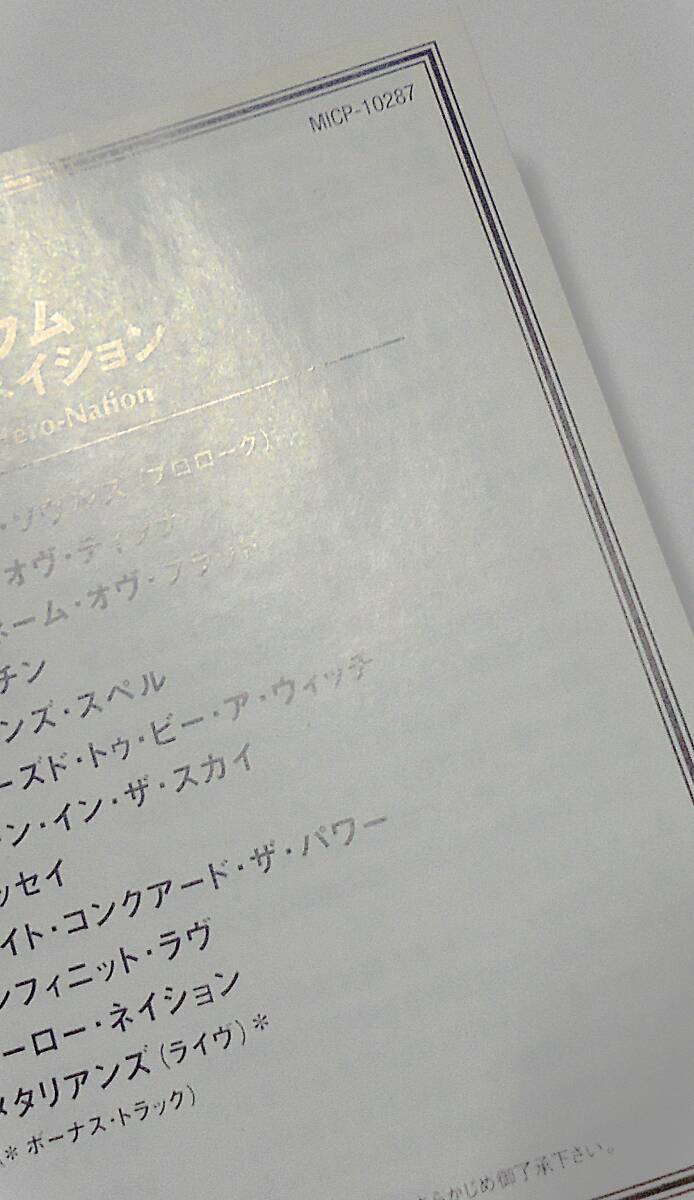 MICP-10287
ウム
ネイション
Hero-Nation
・ソウルズ (プロローク)
オヴ・ティ
ネーム・オヴ・ブラッド
チン
ンズ・スペル
ーズド・トゥ・ビー・ア・ウィッチ
ン・イン・ザ・スカイ
ッセイ
イト・コンクアード・ザ・パワー
ンフィニット・ラヴ
ーロー・ネイション
メタリアンズ (ライヴ) *
(* ボーナス・トラック)
あらかじめ御了承下さい。